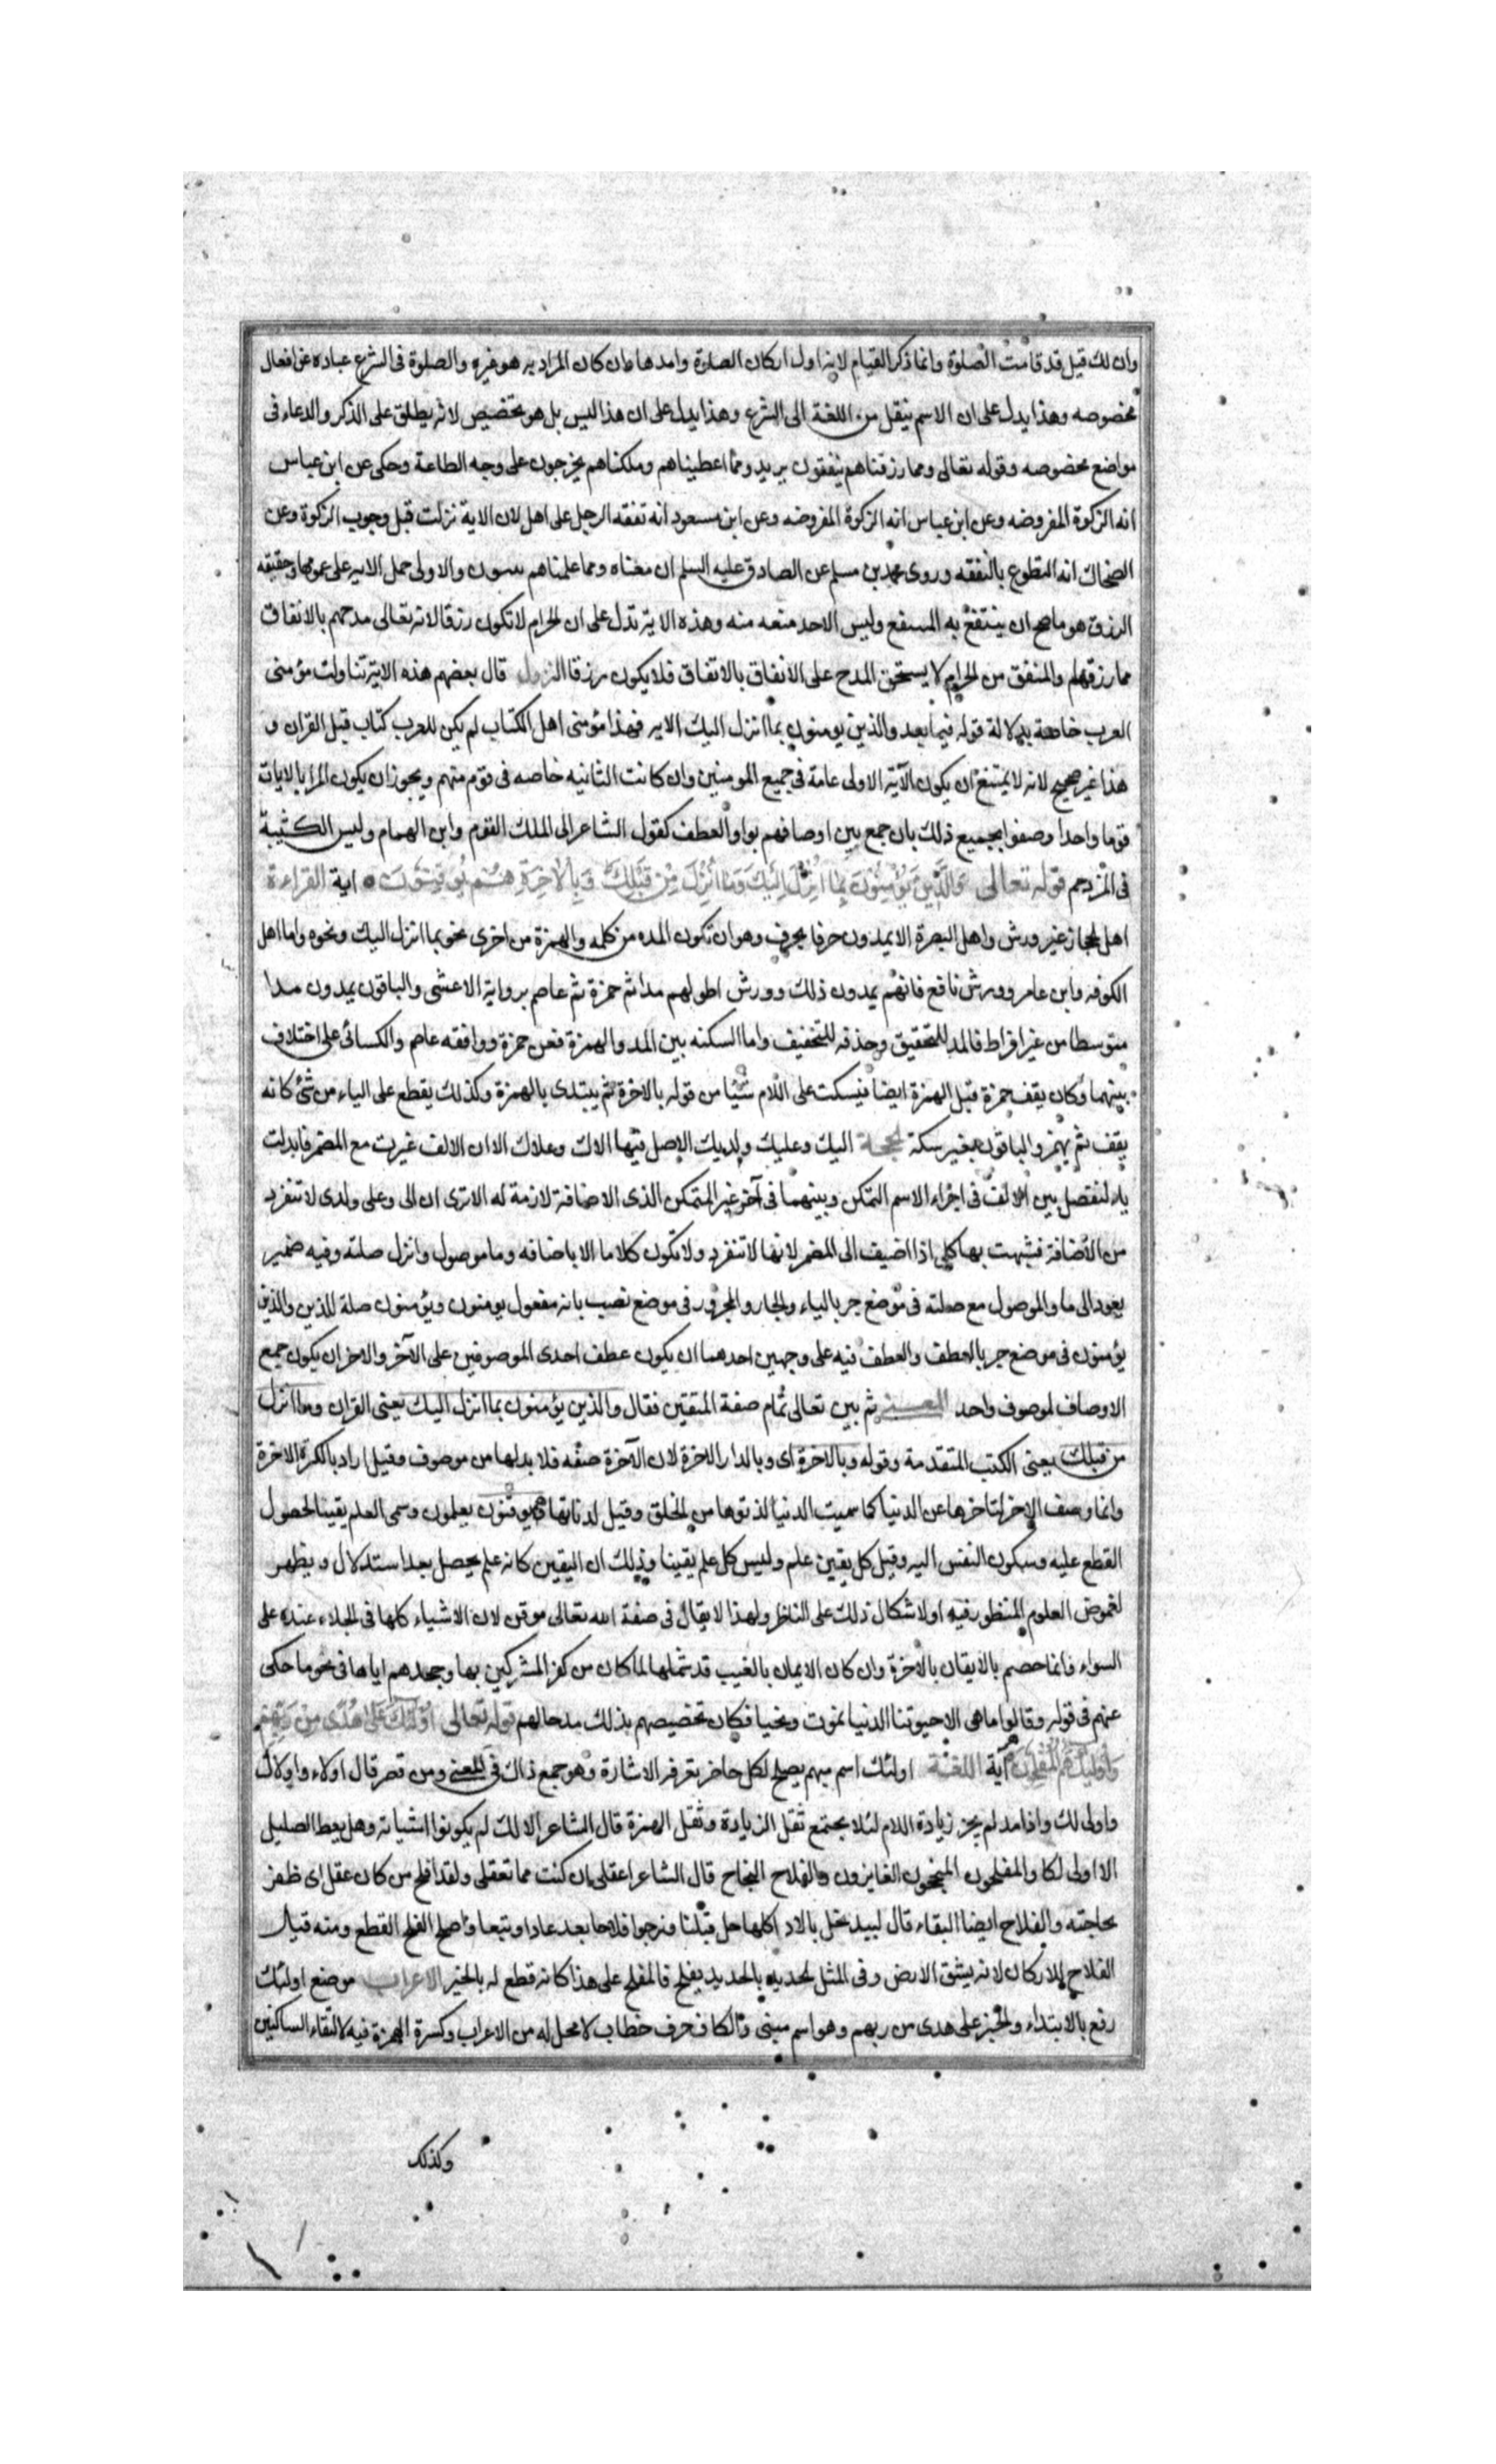 وان لك قيل قد قامت الصلوة وانما ذكر القيام لانه اول اركان الصلوة وامدها وان كان المراد به هو غيره والصلوة فى الشرع عباده عن افعال
مخصوصه وهذا يدل على ان الاسم ينقل من اللغة الى الشرع وهذا يدل على ان هذا ليس بل هو تخصيص لانه يطلق على الذكر والدعاء فى
مواضع مخصوصه وقوله تعالى ومما رزقناهم ينفقون يريد ومما اعطيناهم وملكناهم يخرجون على وجه الطاعة وحكى عن ابن عباس
انه الزكوة المفروضه وعن ابن عباس انه الزكوة المفروضه وعن ابن مسعود انه نفقه الرجل على اهل لان الاية نزلت قبل وجوب الزكوة وعن
الضحاك انه التطوع بالنفقه وروى محمد بن مسلم عن الصادق عليه السلم ان معناه ومما علمناهم والاولى حمل الايه على عمومها وحقيقه
الرزق هو ما صح ان ينتفع به المنتفع وليس لاحد منعه منه وهذه الاية تدل على ان الحرام لا تكون رزقا لانه تعالى مدحهم بالانفاق
مما رزقهم والمنفق من الحرام لا يستحق المدح على الانفاق بالاتفاق فلا يكون رزقا النزول قال بعضهم هذه الاية تناولت مؤمنى
العرب خاصة بدلالة قوله فيما بعد والذين يومنون بما انزل اليك الايه فهذا مؤمنى اهل الكتاب لم يكن للعرب كتاب قبل القران و
هذا غير صحيح لانه لا يمتنع ان يكون الآية الاولى عامة فى جميع المومنين وان كانت الثانيه خاصه فى قوم منهم ويجوز ان يكون المراد بالايات
قوما واحدا وصفوا بجميع ذلك بان جمع بين اوصافهم بواو العطف كقول الشاعر الى الملك القوم وابن الهمام وليس الكتيبة
فى المزدحم قوله تعالى وَالَّذِينَ يُؤْمِنُونَ بِمَا أُنْزِلَ إِلَيْكَ وَمَا أُنْزِلَ مِنْ قَبْلِكَ وَبِالْآخِرَةِ هُمْ يُوقِنُونَ اية القراءة
اهل الحجاز غير ورش واهل البصرة لا يمدون حرفا بحرف وهو ان تكون المده من كلمه والهمزة من اخرى نحو بما انزل اليك ونحوه واما اهل
الكوفه وابن عامر وورش نافع فانهم يمدون ذلك وورش اطولهم مدا ثم حمزة ثم عاصم برواية الاعشى والباقون يمدون مدا
متوسطا من غير افراط فالمد للتحقيق وحذفه للتخفيف واما السكنه بين المد والهمزة فعن حمزة ووافقه عاصم والكسائى على اختلاف
بينهما وكان يقف حمزة قبل الهمزة ايضا فيسكت على اللام شيئا من قوله بالاخرة ثم يبتدى بالهمزة وكذلك يقطع على الياء من شئ كانه
يقف ثم يهمز والباقون بغير سكتة الحجة اليك وعليك ولديك الاصل فيها الاك وعلاك الا ان الالف غيرت مع المضمر فابدلت
ياء لتفصل بين الالف فى اجزاء الاسم المتمكن وبينهما فى آخر غير المتمكن الذى الاضافة لازمة له الا ترى ان الى وعلى ولدى لا تنفرد
من الاضافة فشبهت بها كلى اذا اضيف الى المضمر لانها لا تنفرد ولا تكون كلاما الا باضافه وما موصول وانزل صلته وفيه ضمير
يعود الى ما والموصول مع صلته فى موضع جر بالباء والجار والمجرور فى موضع نصب بانه مفعول يومنون ويؤمنون صلة للذين والذين
يؤمنون فى موضع جر بالعطف والعطف فيه على وجهين احدهما ان يكون عطف احدى الموصوفين على الآخر والاخر ان يكون جمع
الاوصاف لموصوف واحد المعنى ثم بين تعالى تمام صفة المتقين فقال والذين يؤمنون بما انزل اليك يعنى القران وما انزل
من قبلك يعنى الكتب المتقدمة وقوله وبالاخرة اى وبالدار الاخرة لان الآخرة صفه فلا بد لها من موصوف وقيل اراد بالكرة الاخرة
وانما وصف الاخرة لتاخرها عن الدنيا كما سميت الدنيا لدنوها من الخلق وقيل لدناءتها هم يوقنون يعلمون وسمى العلم يقينا لحصول
القطع عليه وسكون النفس اليه وقيل كل يقين علم وليس كل علم يقينا وذلك ان اليقين كانه علم يحصل بعد استدلال و يظهر
لغموض العلوم المنظور فيه او لاشكال ذلك على الناظر ولهذا لا يقال فى صفة الله تعالى موقن لان الاشياء كلها فى الجلاء عنده على
السواء فانما خصهم بالايقان بالاخرة وان كان الايمان بالغيب قد شملها لما كان من كفر المشركين بها وجحدهم اياها فى نحو ما حكى
عنهم فى قوله وقالوا ما هى الا حيوتنا الدنيا نموت ونحيا فكان تخصيصهم بذلك مدحا لهم قوله تعالى أُولَئِكَ عَلَى هُدًى مِنْ رَبِّهِمْ
وَأُولَئِكَ هُمُ الْمُفْلِحُونَ آية اللغة اولئك اسم مبهم يصلح لكل حاضر تعرفه الاشارة وهو جمع ذاك فى المعنى ومن قصر قال اولاء واولاك
واولى لك واذا مد لم يجز زيادة اللام لئلا يجتمع ثقل الزيادة وثقل الهمزة قال الشاعر الا لك لم يكونوا اشبابه وهل يعظ الضليل
الا اولى لكا والمفلحون المنجحون الفايزون والفلاح النجاح قال الشاعر اعقلى ان كنت مما تعقلى ولقد افلح من كان عقل اى ظفر
بحاجته والفلاح ايضا البقاء قال لبيد نحل بلادا كلها حل قبلنا ونرجوا فلاحا بعد عادا وتبعا واصل الفلح القطع ومنه قيل
الفلاح للاركان لانه يشق الارض وفى المثل الحديد بالحديد يفلح فالمفلح على هذا كانه قطع له بالخير الاعراب موضع اولئك
رفع بالابتداء والخبر على هدى من ربهم وهو اسم مبنى والكاف حرف خطاب لا محل له من الاعراب وكسرة الهمزة فيه لالتقاء الساكنين
وكذلك